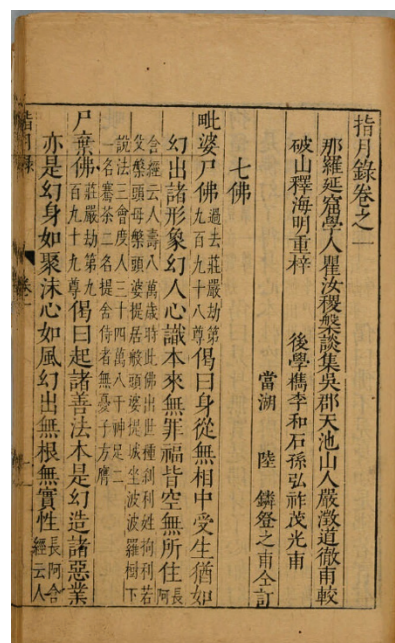 指月錄卷之一
那羅延窟學人瞿汝稷槃談集吳郡天池山人嚴澂道徹甫較
破山釋海明重梓
後學檇李和石孫弘祚茂光甫
當湖 陸 鏻燈之甫仝訂
七佛
毗婆尸佛過去莊嚴劫第九百九十八尊偈曰身從無相中受生猶如
幻出諸形象幻人心識本來無罪福皆空無所住長阿
含經云人壽八萬歲時此佛出世種剎利姓拘利若
父槃頭母槃頭婆提居般頭婆提城坐波波羅樹下
說法三會度人三十四萬八千神足二
一名騫荼二名提舍侍者無憂子方膺
尸棄佛莊嚴劫第九百九十九尊偈曰起諸善法本是幻造諸惡業
亦是幻身如聚沫心如風幻出無根無實性長阿含經云人
指月錄 卷一